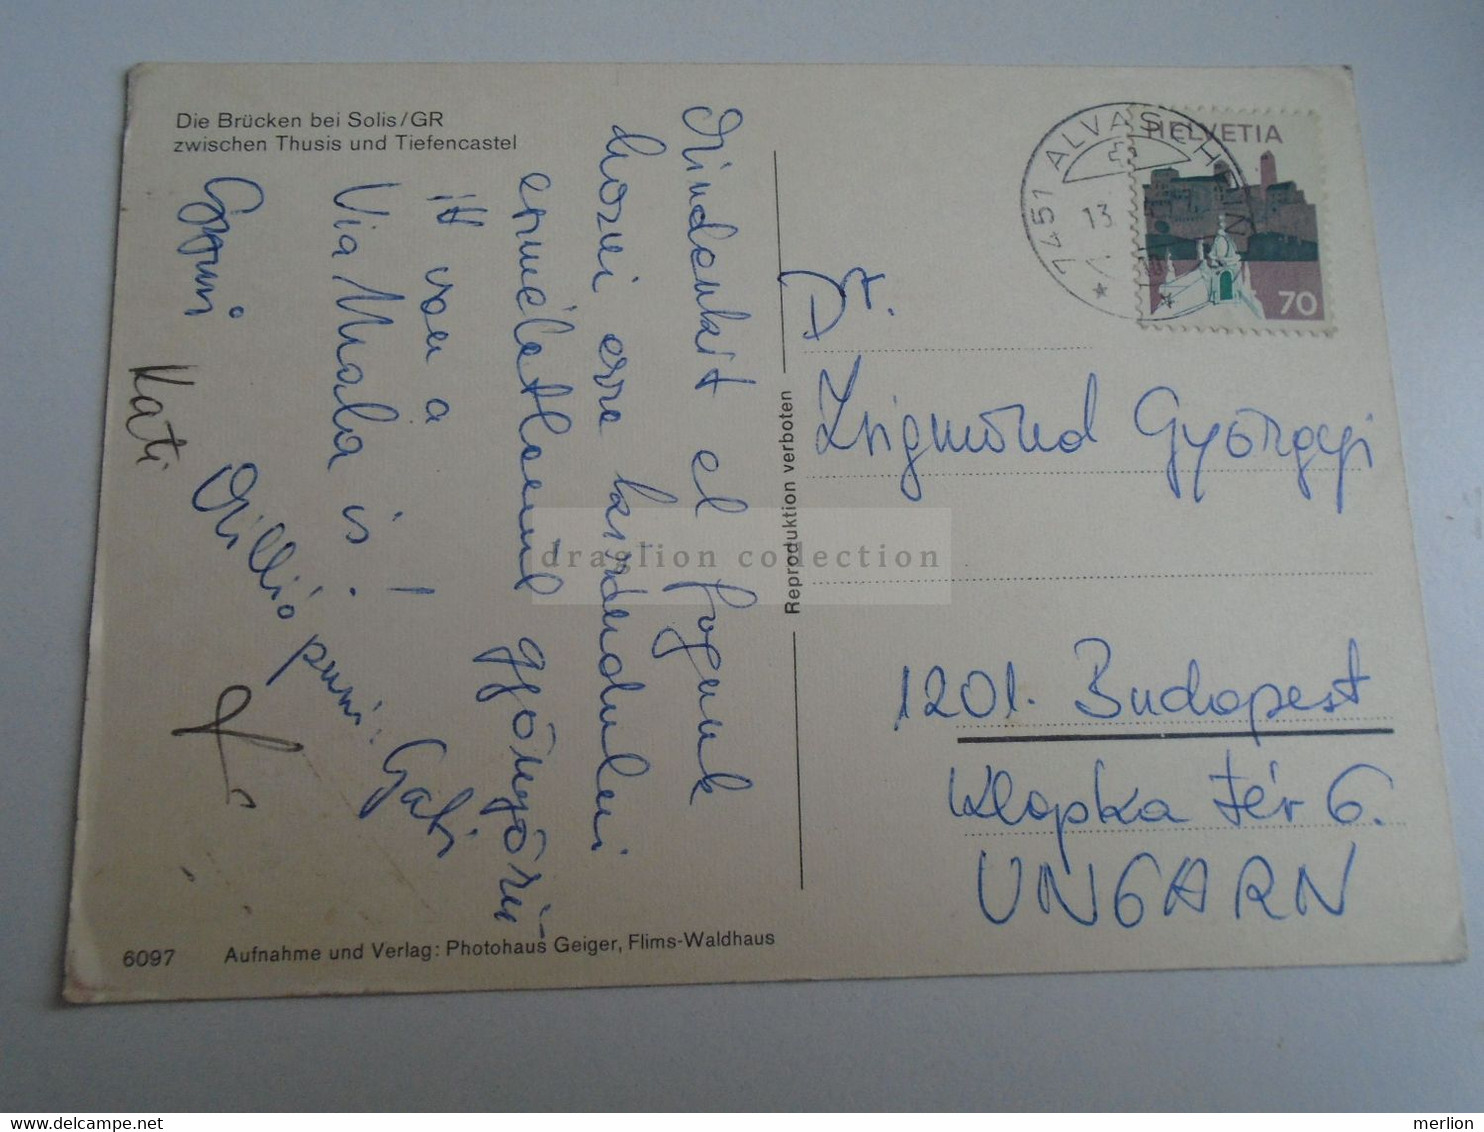 Die Brücken bei Solis/GR
zwischen Thusis und Tiefencastel
Mindenkit el fogunk
hozni erre kirándulni
ennél gyönyörű
itt van a
Via Mala is!
Gyuri
Kati
Millió puszi: Gabi
6097 Aufnahme und Verlag: Photohaus Geiger, Flims-Waldhaus
Reproduktion verboten
draglion collection
7451 ALVASCHEIN
13
HELVETIA
70
Dr.
Zsigmond Györgyi
1201. Budapest
Klapka tér 6.
UNGARN
merlion